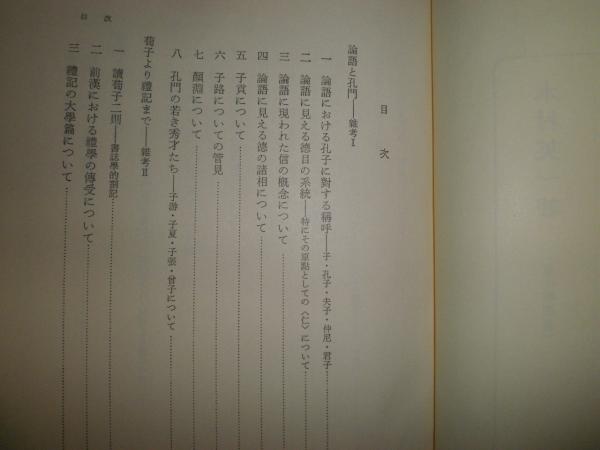 目次
目次
論語と孔門——雜考Ⅰ
一 論語における孔子に對する稱呼——子・孔子・夫子・仲尼・君子
二 論語に見える德目の系統——特にその原點としての〈仁〉について
三 論語に現われた信の概念について
四 論語に見える德の諸相について
五 子貢について
六 子路についての管見
七 顏淵について
八 孔門の若き秀才たち——子游・子夏・子張・曾子について
荀子より禮記まで——雜考Ⅱ
一 讀荀子二則——書誌學的劄記
二 前漢における禮學の傳受について
三 禮記の大學篇について